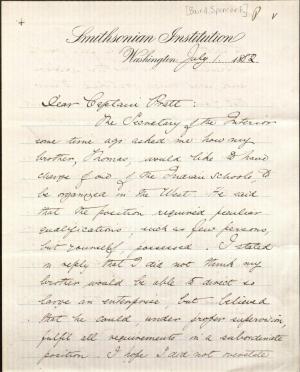 [Baird, Spencer F.]
Smithsonian Institution
Washington July 1. 1882
Dear Captain Pratt:
The Secretary of the Interior
some time ago asked me how my
brother, Thomas, would like to have
charge of one of the Indian schools to
be organized in the West. He said
that the position required peculiar
qualifications, such as few persons,
but yourself possessed. I stated
in reply that I did not think my
brother would be able to direct so
large an enterprise, but believed
that he could, under proper supervision,
fulfil all requirements in a subordinate
position. I hope I did not overstate